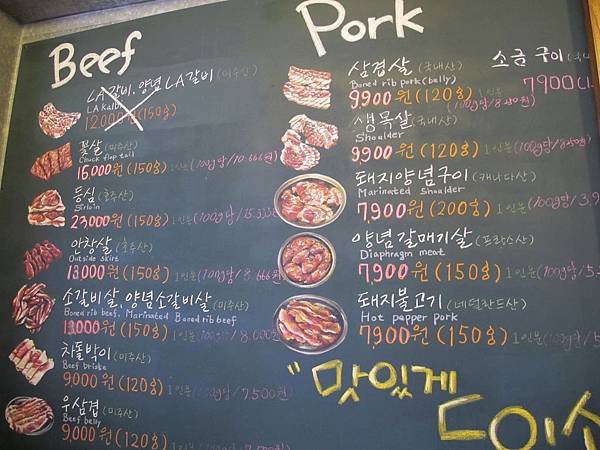 Beef
LA갈비, 양념 LA갈비 (미주산)
LA kalbi
12000원 (150g)
꽃살 (미주산)
Chuck flap tail
16,000원 (150g) 1인분 (100g당/10.666원)
등심 (호주산)
Sirloin
23,000원 (150g) 1인분 (100g당/15.333원
안창살 (호주산)
Outside skirt
13,000원 (150g) 1인분 (100g당/8.666원
소갈비살, 양념소갈비살 (미주산)
Boned rib beef, Marinated Boned rib beef
(150g) 1인분 /8,000원
차돌박이 (미주산)
Beef briske
9,000원 (120g) 1인분 (100g당/7,500원
우삼겹 (미주산)
Beef belly
9,000원 (120g)
Pork
삼겹살 (국내산)
Boned rib pork (belly)
9,900원 (120g) 1인분
(100g당/
생목살 (국내산)
Shoulder
9,900원 (120g) 1인분 (100g당/
돼지양념구이 (캐나다산)
Marinated Shoulder
7,900원 (200g) 1인분 (100g당/3,9
양념갈매기살 (프랑스산)
Diaphragm meat
7,900원 (150g) 1인분 (100g당/5.
돼지불고기 (네덜란드산)
Hot pepper pork
7,900원 (150g) 1인분 (100g당/5
소금구이 (국내
7900
"맛있게
드이소